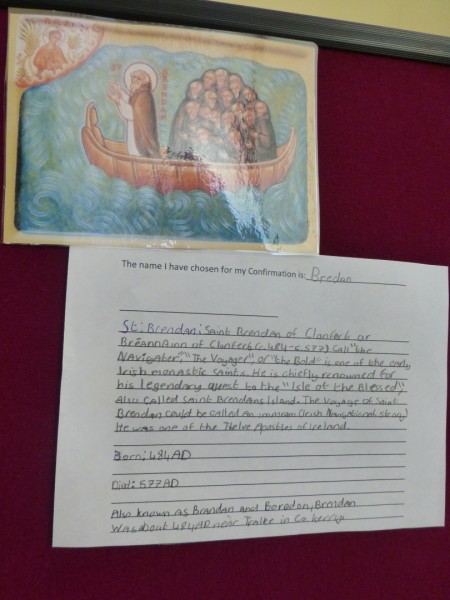 The name I have chosen for my Confirmation is: Bredan
St: Brendan: Saint Brendan of Clonfert or
Bréannainn of Clonfert (c.484-c.577) Call "the
Navigater", "The Voyager" or "the Bold" is one of the early
Irish monastic saints. He is chiefly renowned for
his legendary quest to the "Isle of the Blessed",
Also Called Saint Brendans Island. The Voyage of Saint
Brendan could be called An immram (Irish Navigational story)
He was one of the Twelve Apostles of Ireland.
Born: 484AD
Died: 577AD
Also known as Brandan and Borodon, Brendan
Was about 484AD near Tralee in Co. kerry.